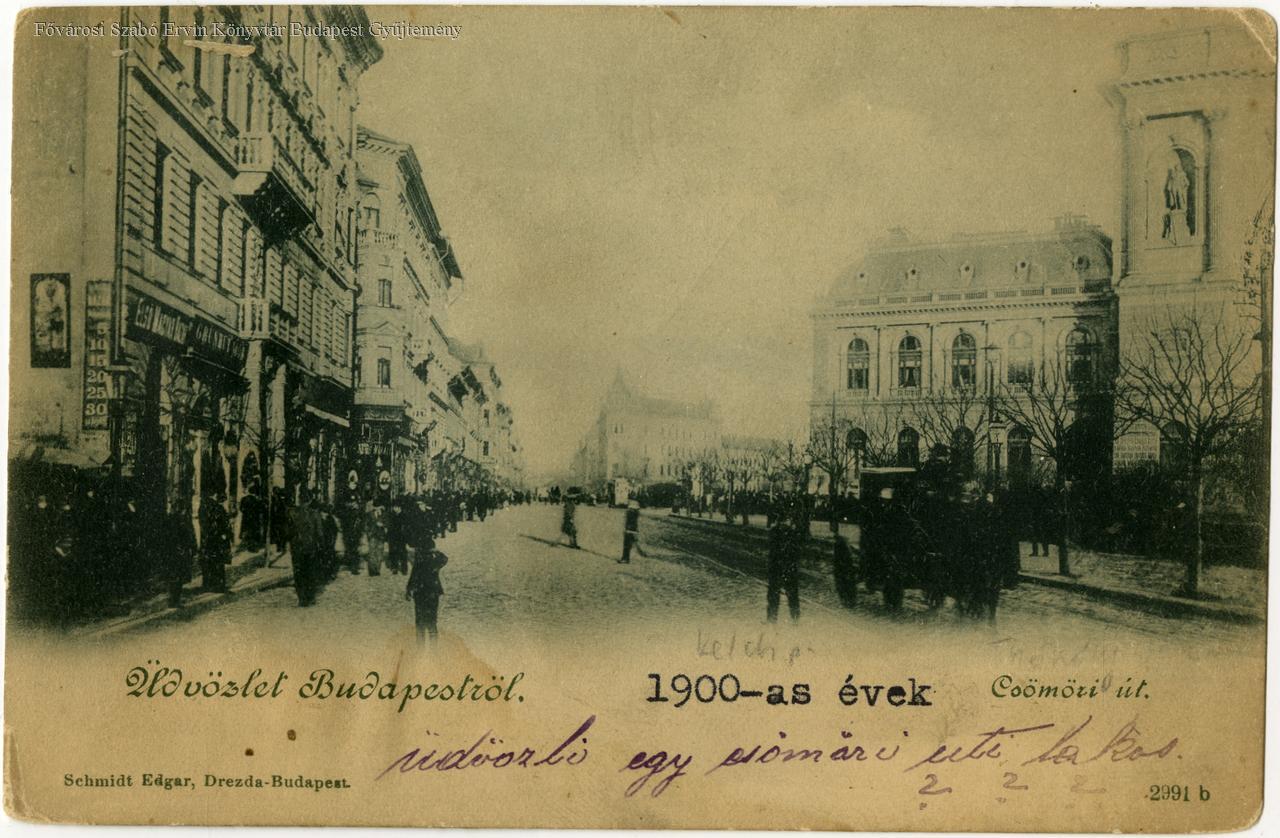 Fővárosi Szabó Ervin Könyvtár Budapest Gyűjtemény
20
25
30
Üdvözlet Budapestről.
1900-as évek
Csömöri út.
üdvözli egy csömöri uti lakos.
? ? ?
Schmidt Edgar, Drezda-Budapest.
2991 b